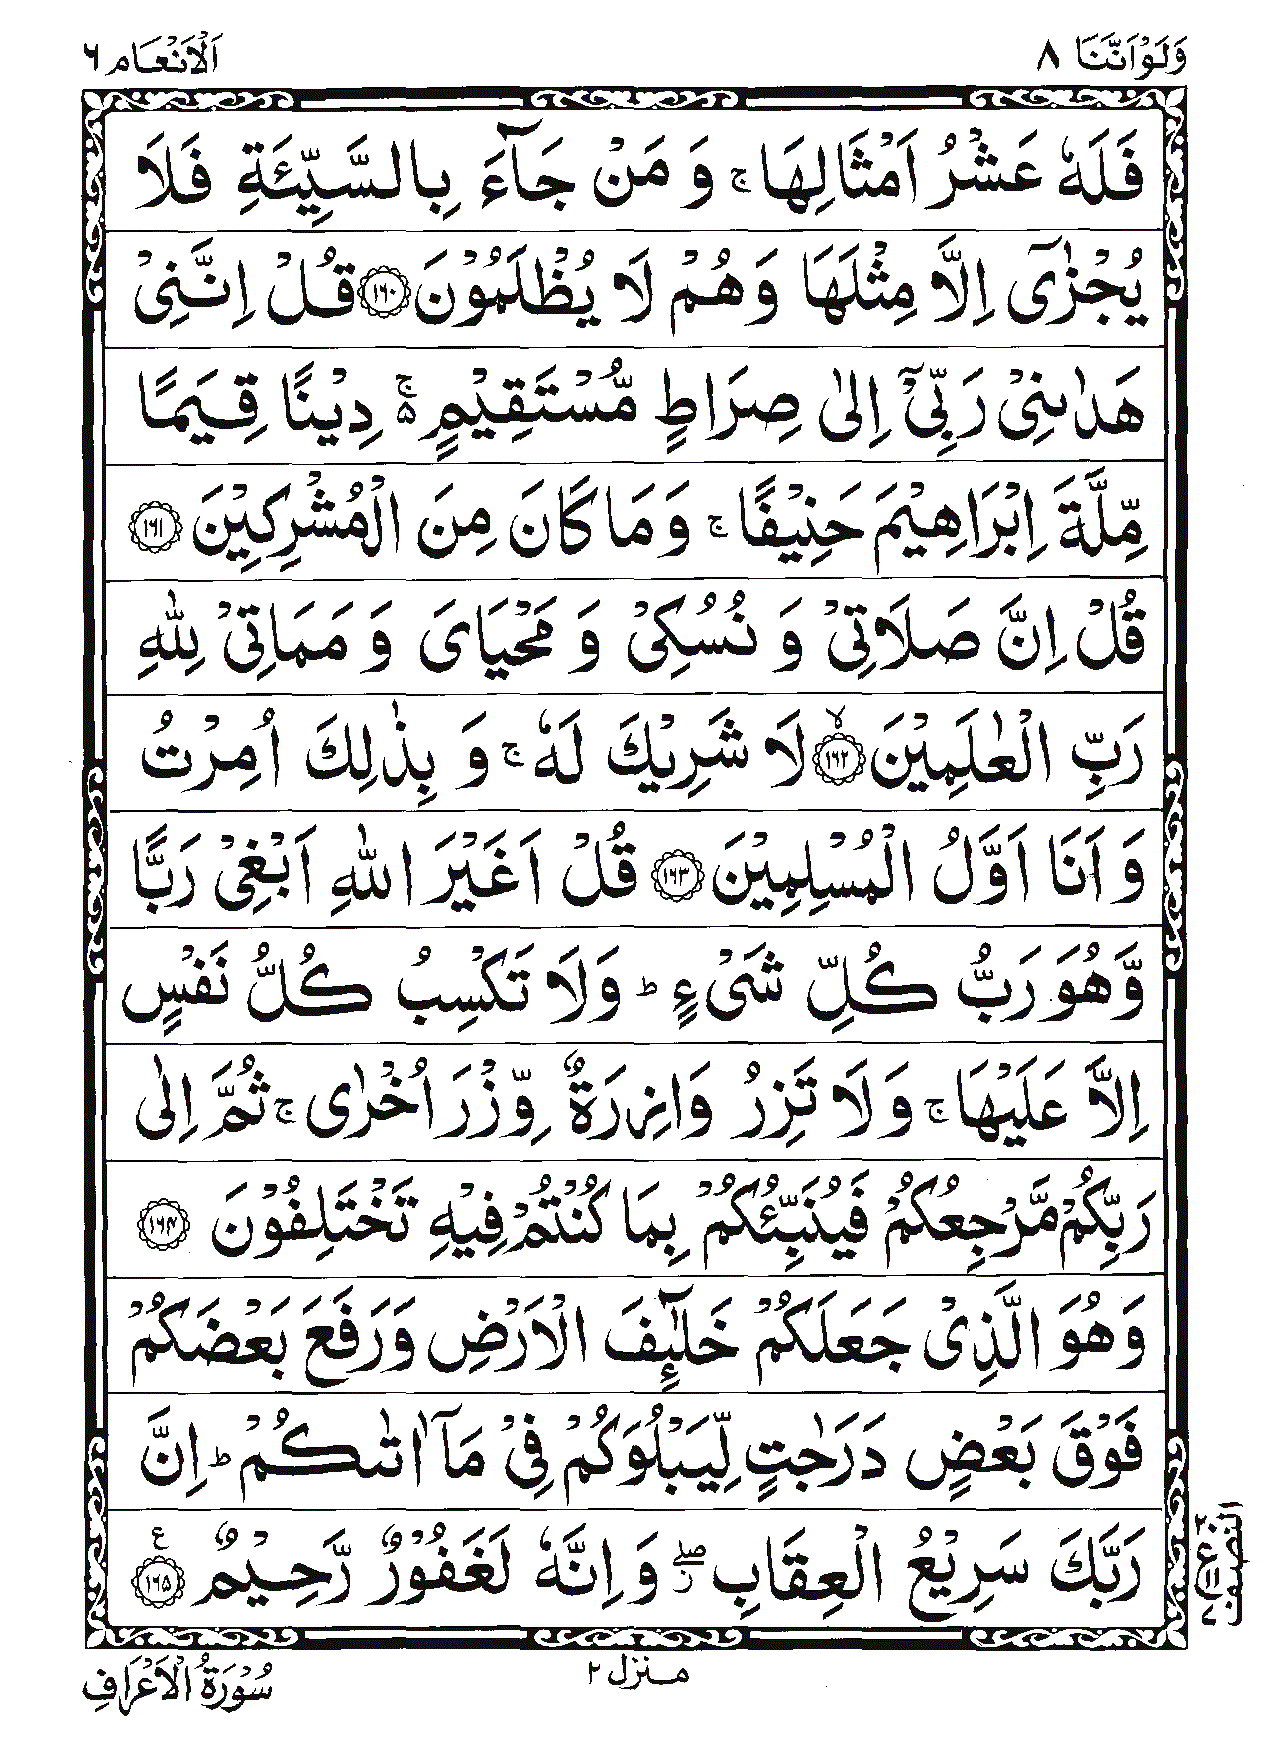 وَلَوْاَنَّنَا ٨
اَلْاَنْعَام ٦
فَلَهٗ عَشْرُ اَمْثَالِهَا ۚ وَ مَنْ جَآءَ بِالسَّيِّئَةِ فَلَا
يُجْزٰۤى اِلَّا مِثْلَهَا وَهُمْ لَا يُظْلَمُوْنَ ﴿١٦٠﴾ قُلْ اِنَّنِىْ
هَدٰىنِىْ رَبِّىْۤ اِلٰى صِرَاطٍ مُّسْتَقِيْمٍ ۚ۬ دِيْنًا قِيَمًا
مِّلَّةَ اِبْرَاهِيْمَ حَنِيْفًا ۚ وَمَا كَانَ مِنَ الْمُشْرِكِيْنَ ﴿١٦١﴾
قُلْ اِنَّ صَلَاتِىْ وَ نُسُكِىْ وَ مَحْيَاىَ وَ مَمَاتِىْ لِلّٰهِ
رَبِّ الْعٰلَمِيْنَ ۙ﴿١٦٢﴾ لَا شَرِيْكَ لَهٗ ۚ وَ بِذٰلِكَ اُمِرْتُ
وَ اَنَا اَوَّلُ الْمُسْلِمِيْنَ ﴿١٦٣﴾ قُلْ اَغَيْرَ اللّٰهِ اَبْغِىْ رَبًّا
وَّهُوَ رَبُّ كُلِّ شَىْءٍ ؕ وَلَا تَكْسِبُ كُلُّ نَفْسٍ
اِلَّا عَلَيْهَا ۚ وَ لَا تَزِرُ وَازِرَةٌ وِّزْرَ اُخْرٰى ۚ ثُمَّ اِلٰى
رَبِّكُمْ مَّرْجِعُكُمْ فَيُنَبِّئُكُمْ بِمَا كُنْتُمْ فِيْهِ تَخْتَلِفُوْنَ ﴿١٦٤﴾
وَهُوَ الَّذِىْ جَعَلَكُمْ خَلٰٓئِفَ الْاَرْضِ وَرَفَعَ بَعْضَكُمْ
فَوْقَ بَعْضٍ دَرَجٰتٍ لِّيَبْلُوَكُمْ فِىْ مَاۤ اٰتٰىكُمْ ؕ اِنَّ
رَبَّكَ سَرِيْعُ الْعِقَابِ ۖ ز وَ اِنَّهٗ لَغَفُوْرٌ رَّحِيْمٌ ﴿١٦٥﴾ ع
النصف
٢٠ ع ١١ ٧
منزل ٢
سُوْرَةُ الْاَعْرَافِ